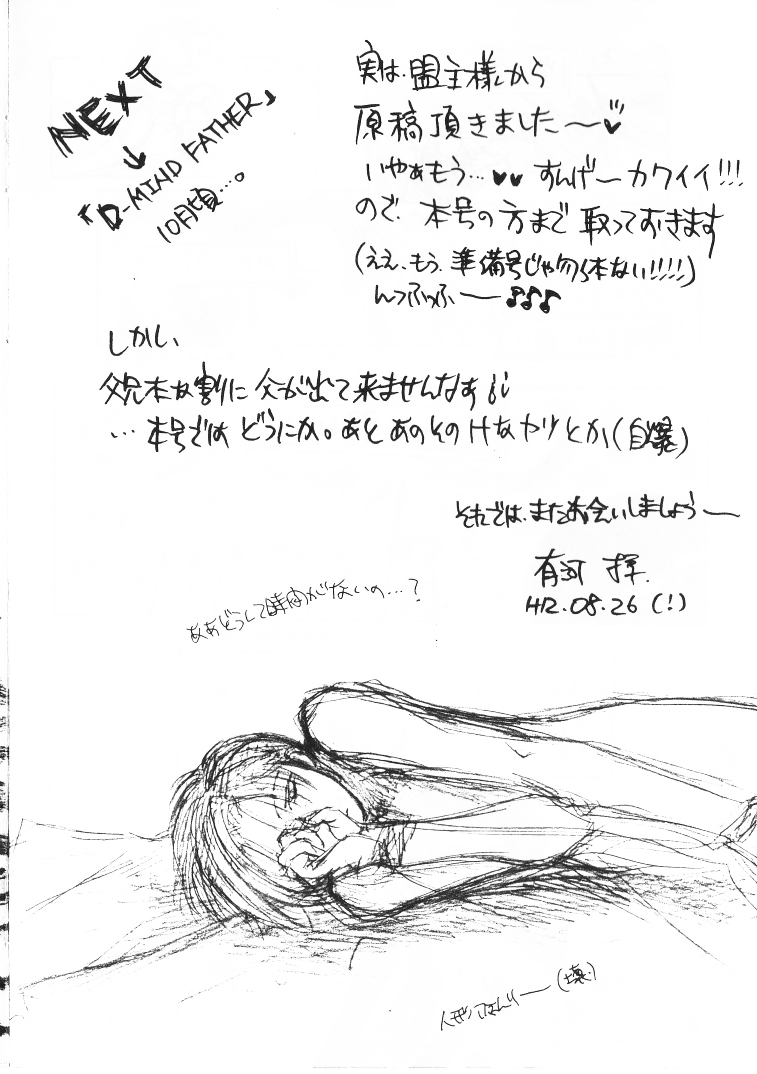 NEXT
↓
「D-MIND FATHER」
10月頃…。
実は、盟主様から
原稿頂きました〜♥
いやぁもう…♥♥ すんげーカワイイ!!!
ので、本号の方まで取っておきます
(ええ、もう、準備号じゃ勿体ない!!!!)
んっふふっふー♪♪♪
しかし、
父兄本な割に父が出て来ませんなぁ
…本号ではどうにか。あとあのそのHなヤツとか(自爆)
それでは、またお会いしましょうー
有河 揮
H12.08.26 (!)
ああどうして時間がないの…?
(壊)